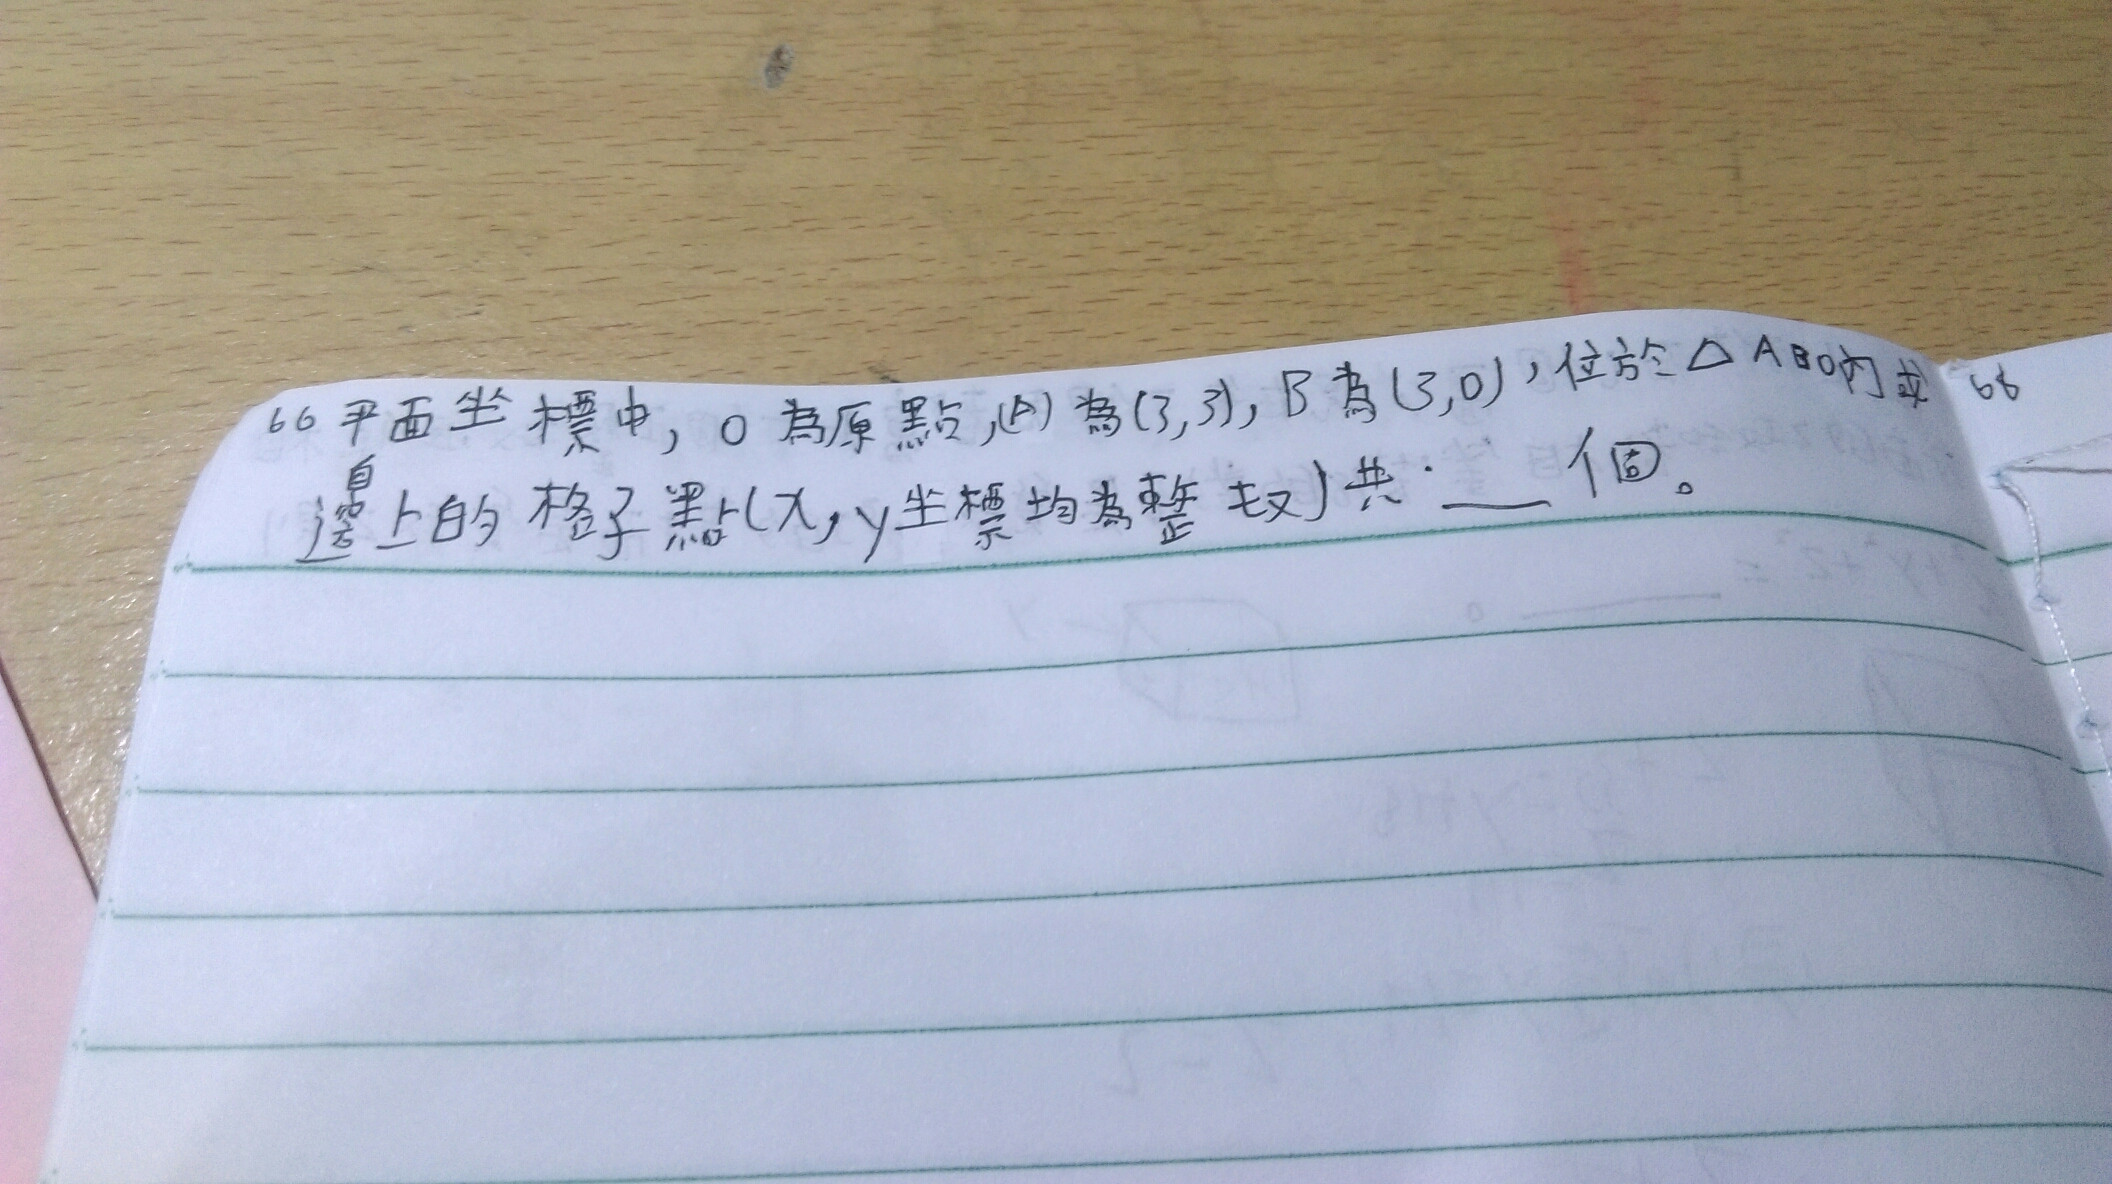 66平面坐標中, O為原點, (A)為(3,3), B為(3,0), 位於△ABO內或
邊上的格子點(x, y坐標均為整数)共___個。
66